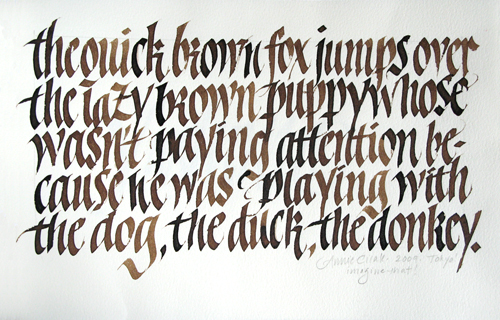 the quick brown fox jumps over
the lazy brown puppy whose
wasn't paying attention be-
cause he was playing with
the dog, the duck, the donkey.
Annie 2009. Tokyo